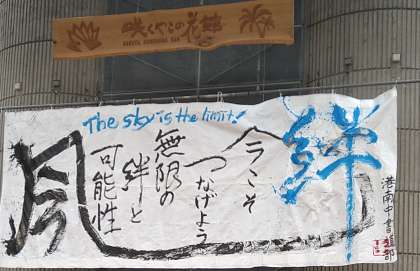 咲くやこの花館
The sky is the limit!
絆
今こそ
つなげよう
無限の
絆と
可能性
凧
港南中書道部